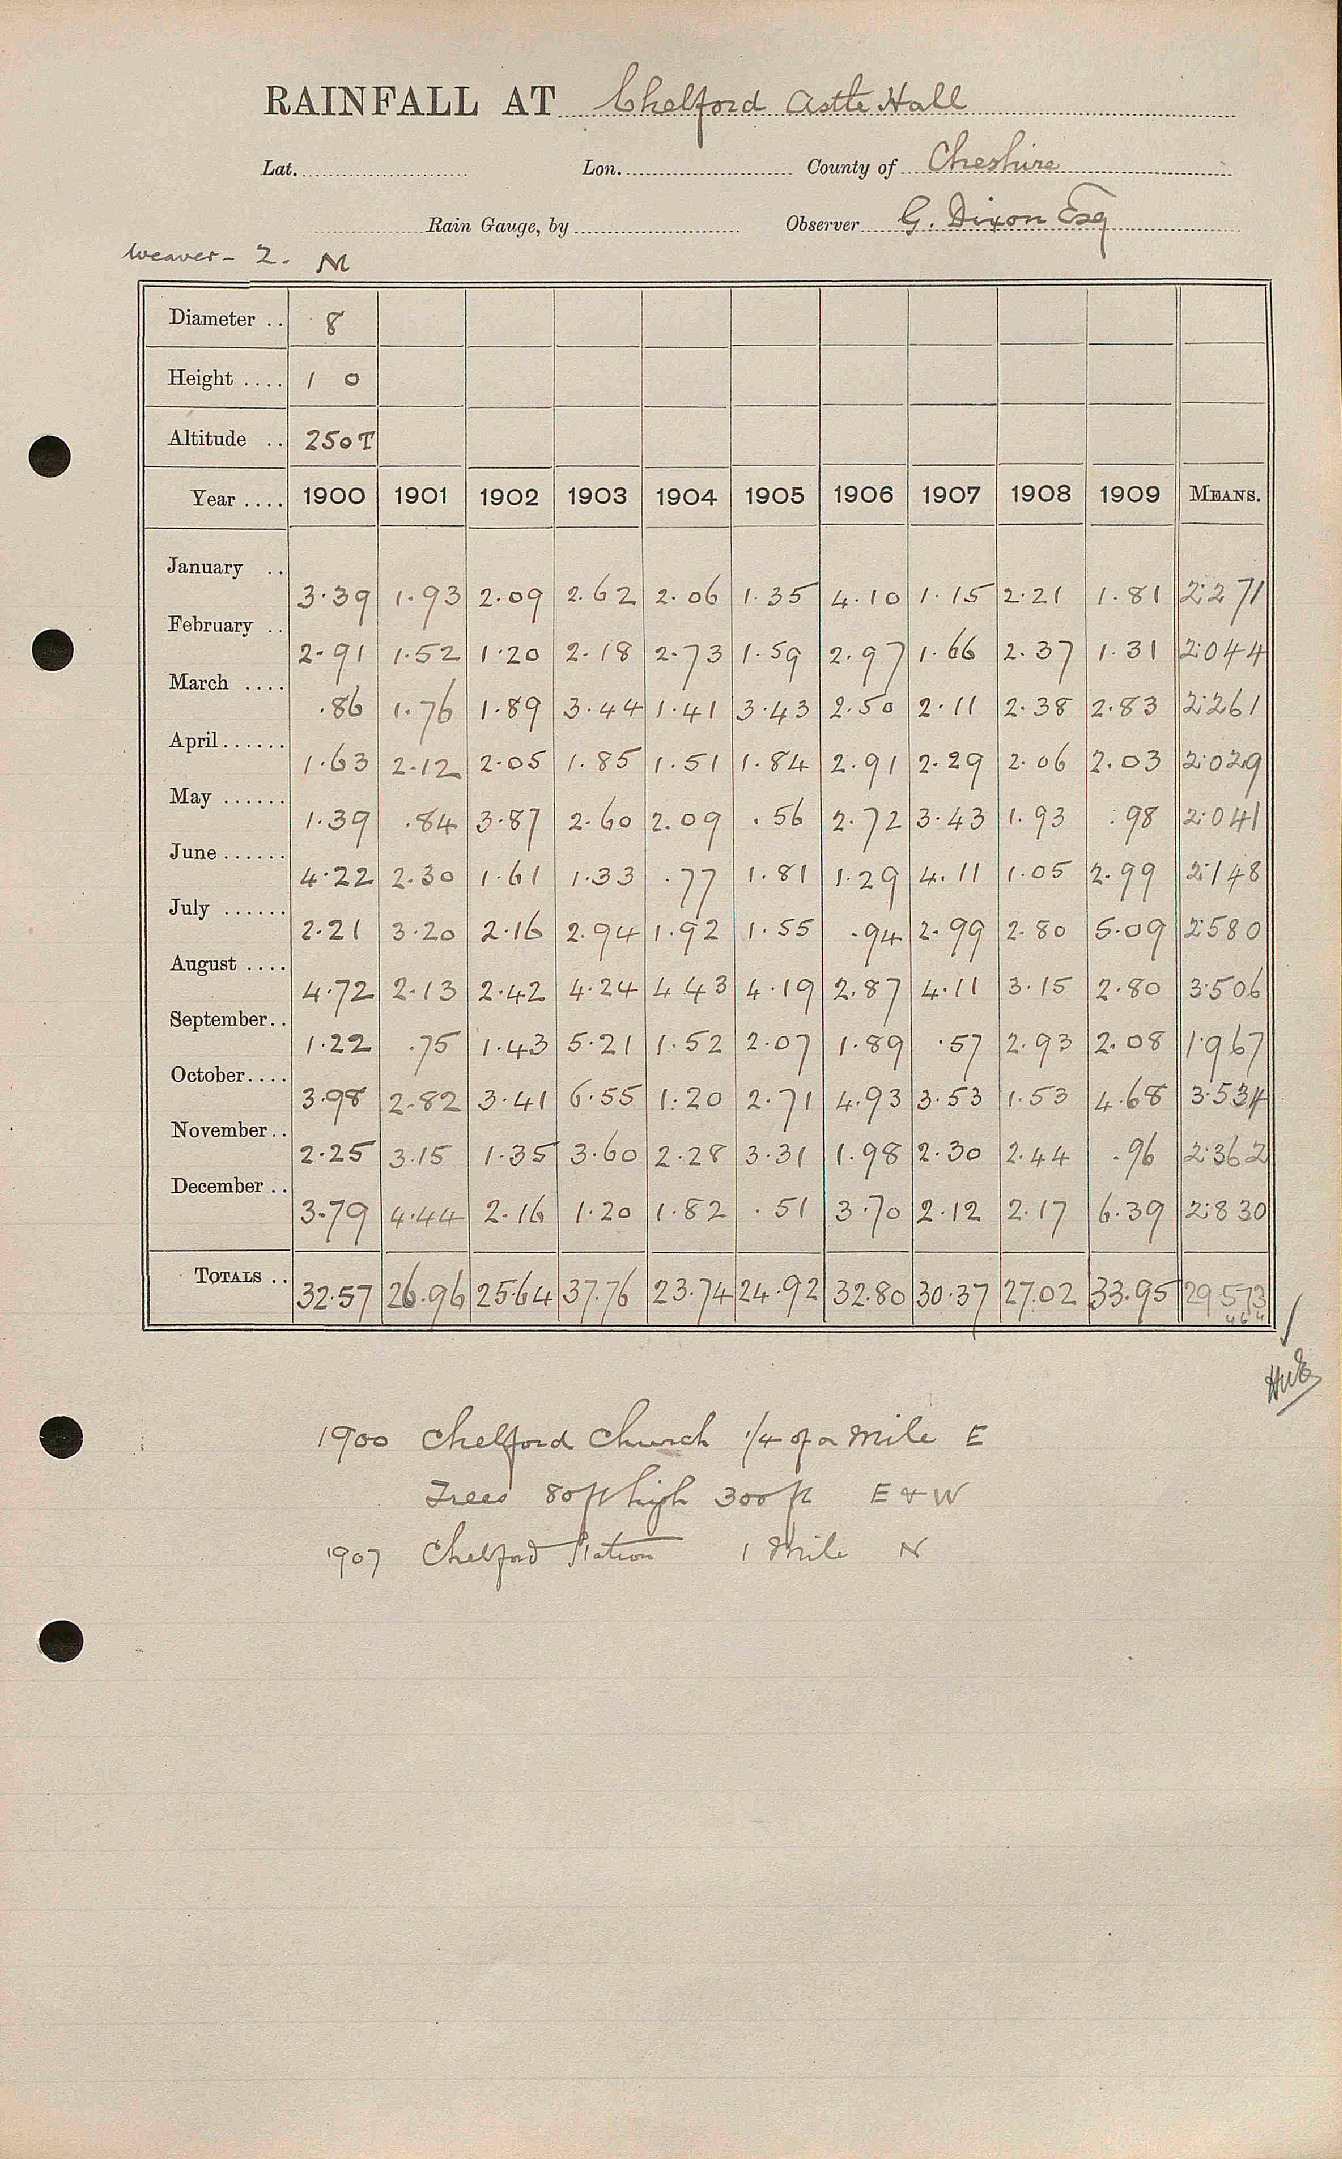 RAINFALL AT Chelford Astle Hall
Lat. Lon. County of Cheshire
Rain Gauge, by Observer G. Dixon Esq
Weaver - 2. M
Diameter .. 8
Height .... 1 0
Altitude .. 250T
Year .... 1900 1901 1902 1903 1904 1905 1906 1907 1908 1909 MEANS.
January .. 3.39 1.93 2.09 2.62 2.06 1.35 4.10 1.15 2.21 1.81 2.271
February .. 2.91 1.52 1.20 2.18 2.73 1.59 2.97 1.66 2.37 1.31 2.044
March .... .86 1.76 1.89 3.44 1.41 3.43 2.50 2.11 2.38 2.83 2.261
April...... 1.63 2.12 2.05 1.85 1.51 1.84 2.91 2.29 2.06 2.03 2.029
May ...... 1.39 .84 3.87 2.60 2.09 .56 2.72 3.43 1.93 .98 2.041
June...... 4.22 2.30 1.61 1.33 .77 1.81 1.29 4.11 1.05 2.99 2.148
July ...... 2.21 3.20 2.16 2.94 1.92 1.55 .94 2.99 2.80 5.09 2580
August .... 4.72 2.13 2.42 4.24 4 43 4.19 2.87 4.11 3.15 2.80 3.506
September.. 1.22 .75 1.43 5.21 1.52 2.07 1.89 .57 2.93 2.08 1.967
October.... 3.98 2.82 3.41 6.55 1.20 2.71 4.93 3.53 1.53 4.68 3.534
November.. 2.25 3.15 1.35 3.60 2.28 3.31 1.98 2.30 2.44 .96 2.362
December.. 3.79 4.44 2.16 1.20 1.82 .51 3.70 2.12 2.17 6.39 2.830
TOTALS .. 32.57 26.96 25.64 37.76 23.74 24.92 32.80 30.37 27.02 33.95 29.573
1900 Chelford Church 1/4 of a Mile E
Trees 80ft high 300ft E & W
1907 Chelford Station 1 Mile N